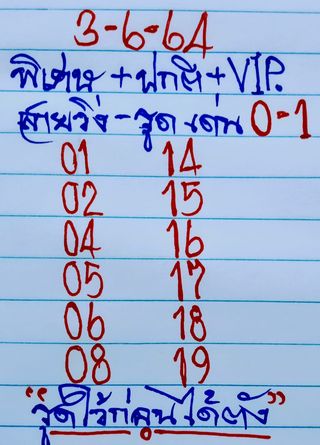 3-6-64
พิเศษ + ปกติ + VIP.
สายวิ่ง - รูด เด่น 0-1
01 14
02 15
04 16
05 17
06 18
08 19
"รูดไว้ก่อนได้ตัง"